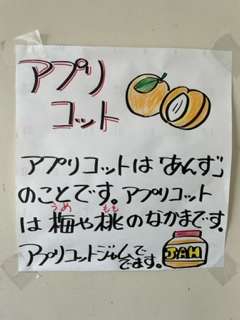 アプリ
コット
アプリコットは「あんず」
のことです。アプリコット
うめ もも
は梅や桃のなかまです。
アプリコットジャムで
でです。
JAM